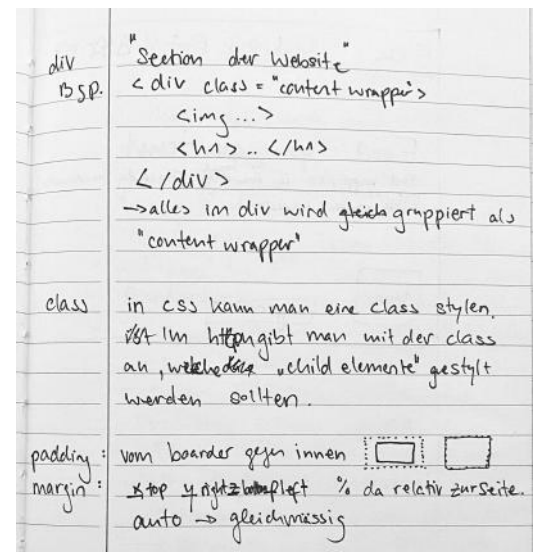 div "Section der Website"
BSP. < div class = "content wrapper">
<img ...>
<h1> .. </h1>
</div>
→ alles im div wird gruppiert als
"content wrapper"
class in css kann man eine class stylen.
Im gibt man mit der class
an, "child elemente" gestylt
werden sollten.
padding : vom boarder gegen innen
margin : x top y right z left % da relativ zur Seite.
auto → gleichmässig